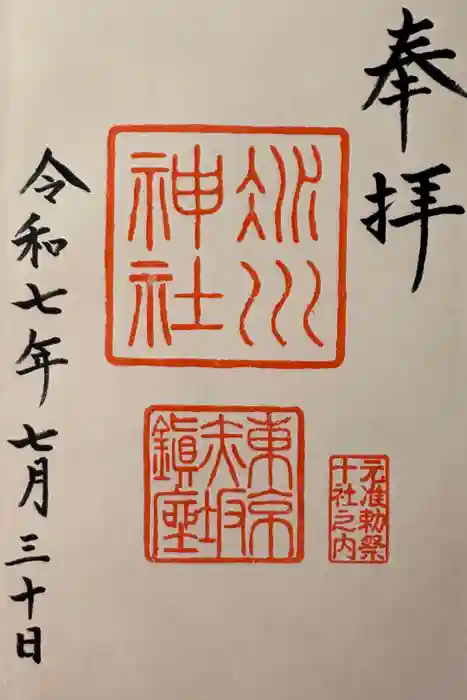 奉拝
氷川
神社
東京
赤坂
鎮座
元准勅祭
十社之内
令和七年七月三十日